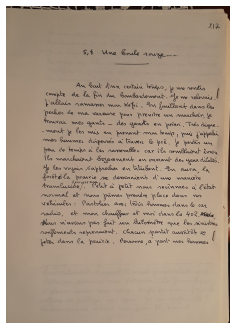 217
8,8 Une boule rouge
Au bout d'un certain temps, je me rendis
compte de la fin du bombardement. Je me relevai !
J'allais ramasser mon képi. En fouillant dans les
poches de ma vareuse pour prendre un mouchoir, je
trouvai mes gants - des gants en peau. Très digne-
ment je les mis en prenant mon temps, puis j'appelai
mes hommes dispersés à travers le pré. Je perdis un
peu de temps à les rassembler car ils
Ils marchaient en ouvrant des yeux
Je les voyais s'approcher en titubant. En outre, la
forêt et la prairie se dessinaient d'une manière
translucide. Petit à petit nous revînmes à l'état
normal et nous pûmes prendre place dans nos
véhicules. Pastelier avec trois hommes dans le car
radio, et mon chauffeur et moi dans la 402. Nous
n'avions pas fait un kilomètre que les sinistres
ronflements reprenaient. Chacun sortait aussitôt et
dans la prairie. Personne, à part nos hommes